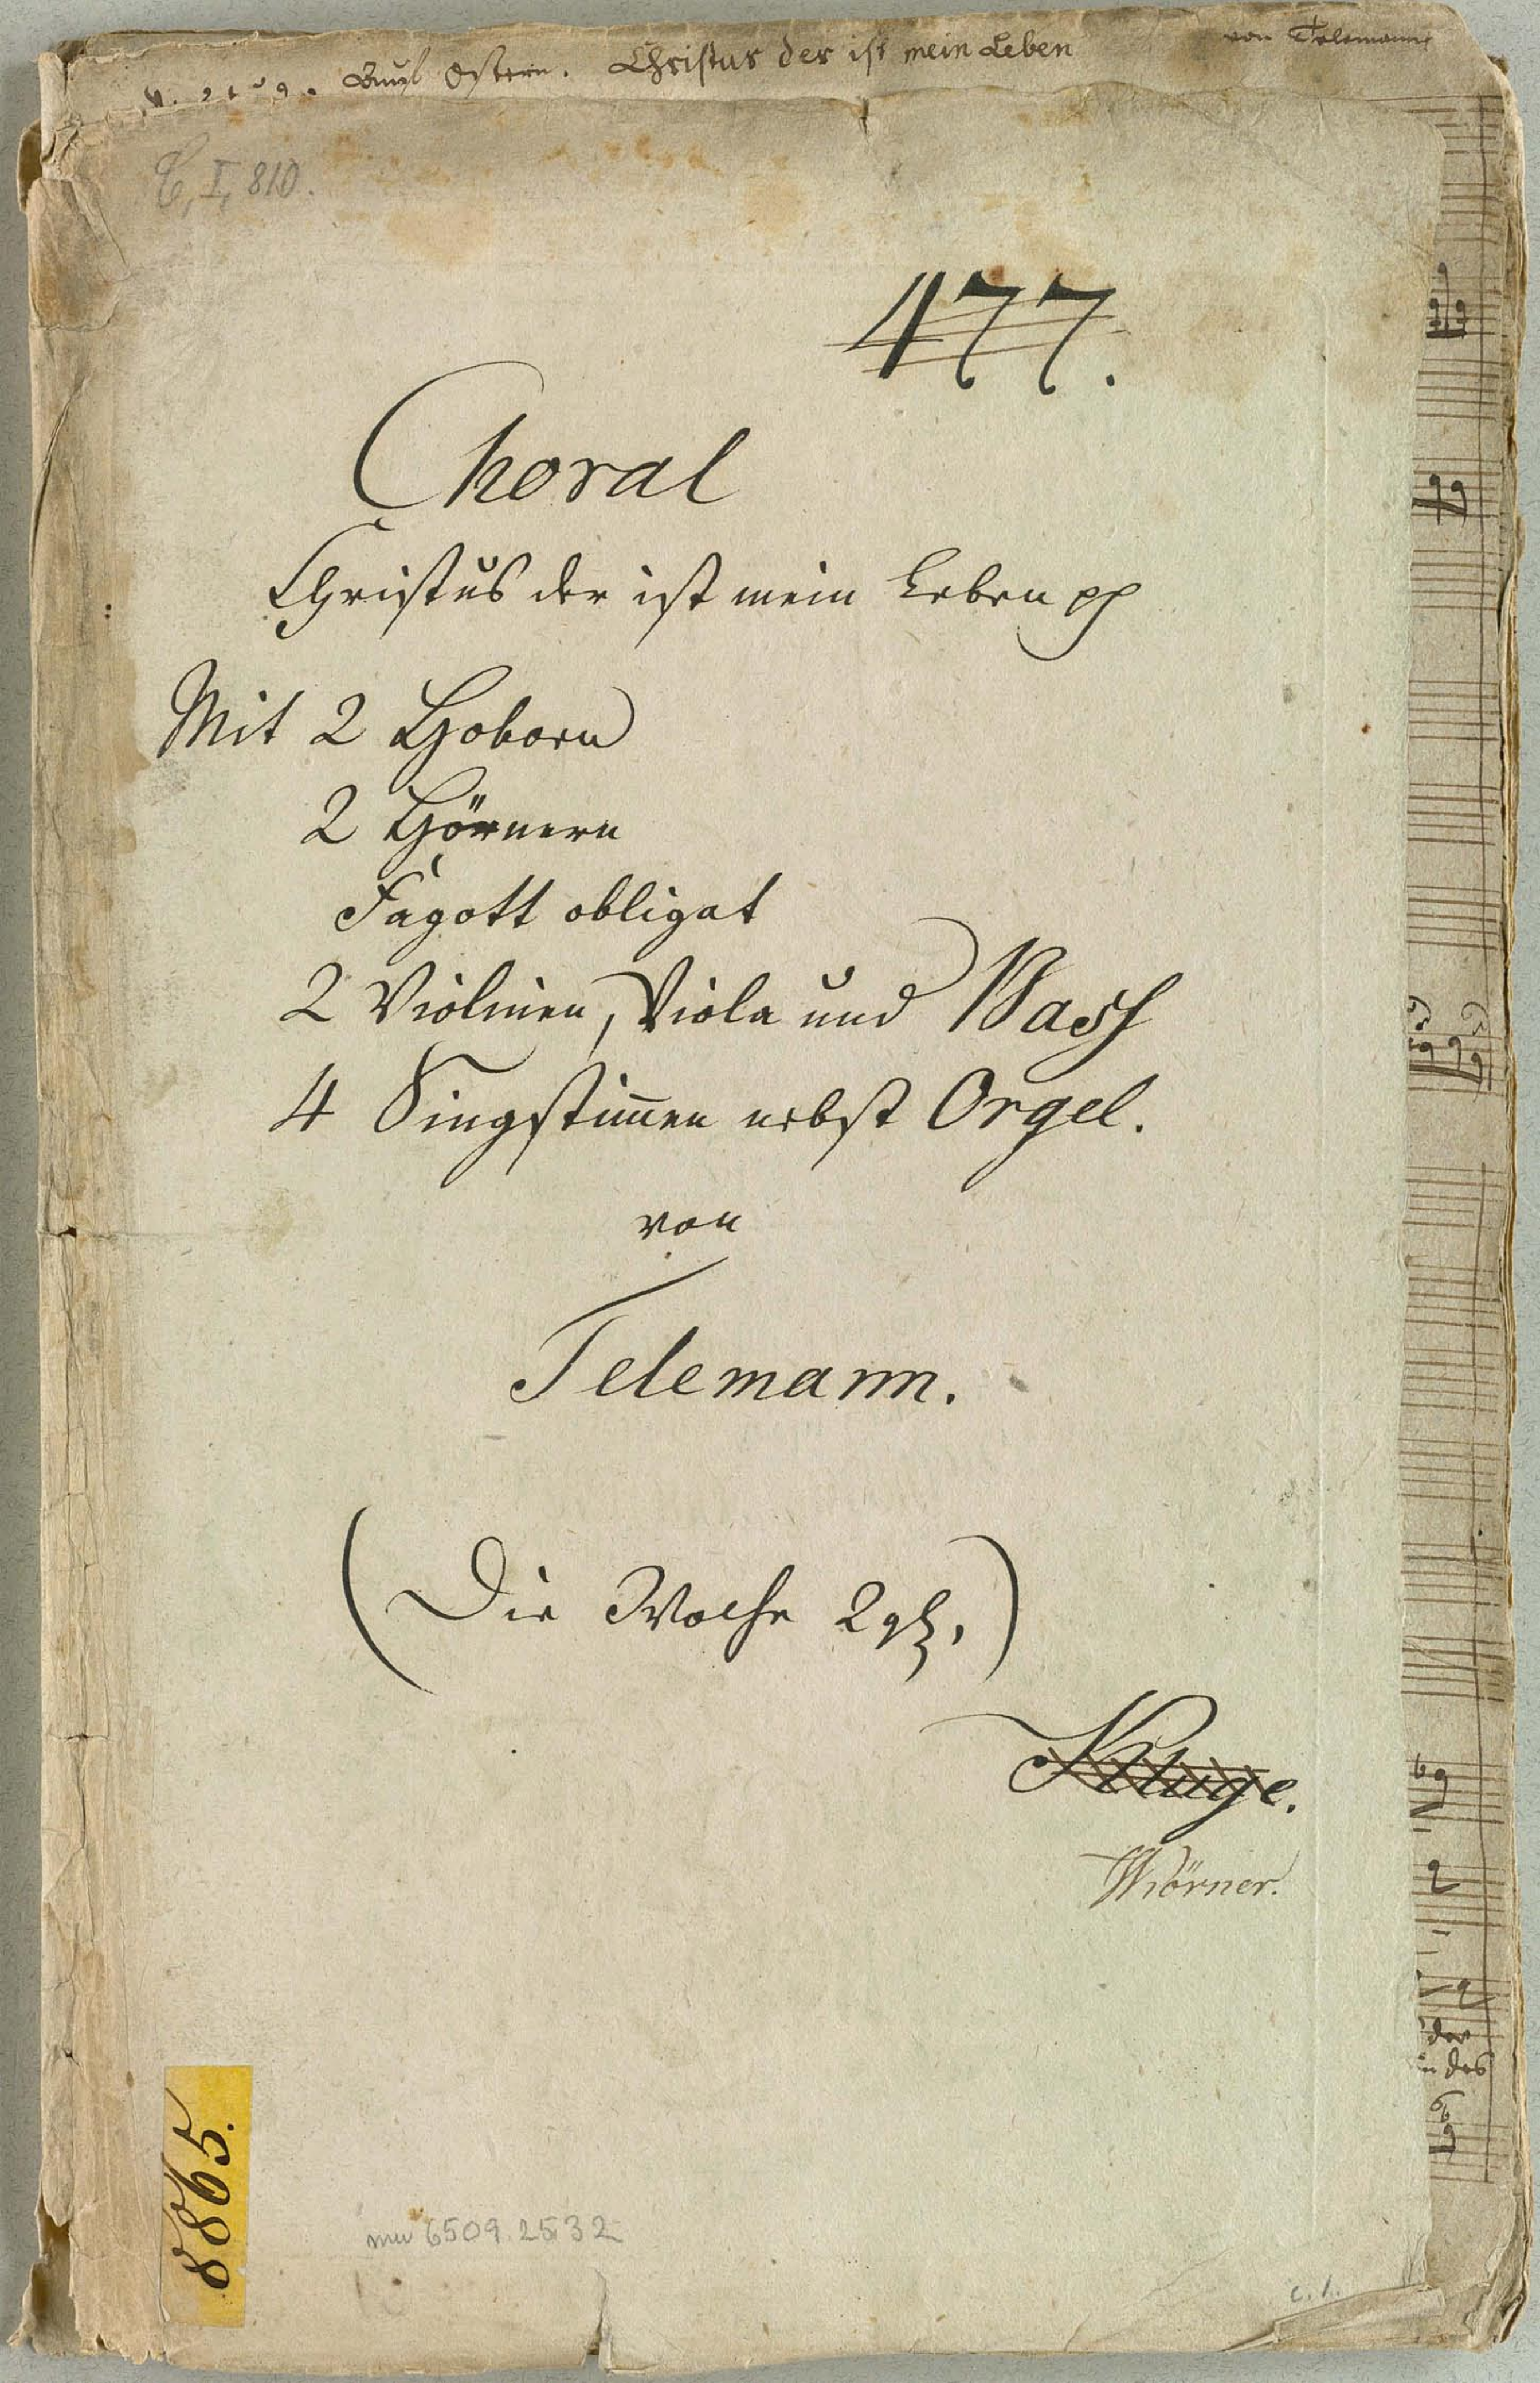 Ostern. Christus der ist mein Leben von Telemann
C, I, 810.
477.
Choral
Christus der ist mein Leben pp
Mit 2 Hoboen
2 Hörnern
Fagott obligat
2 Violinen, Viola und Bass
4 Singstim̄en nebst Orgel.
von
Telemann.
(Die Woche 2 gl.)
Kluge.
Wörner.
der
in des
8865.
mus 6509.2532
c. 1.